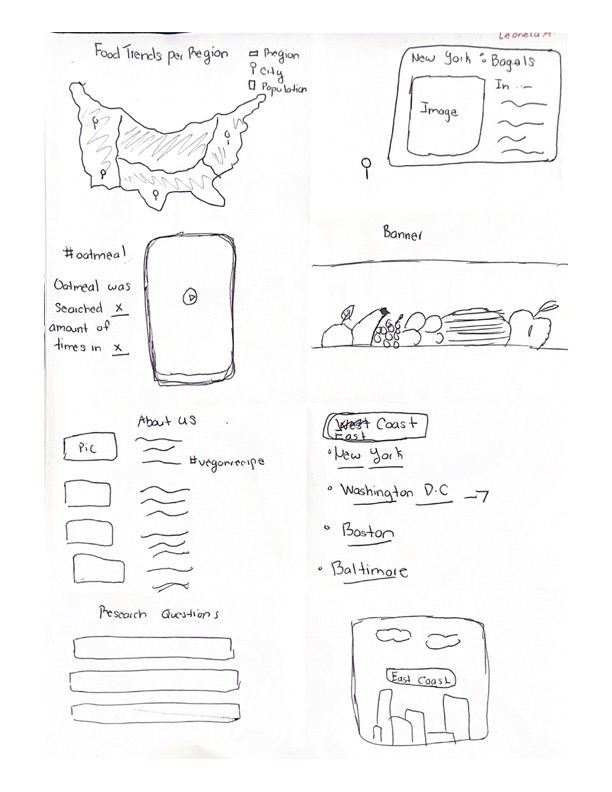 Leonela A.
Food Trends per Region
Region
City
Population
New York : Bagels
In ...
Image
#oatmeal
Oatmeal was
searched X
amount of
times in X
Banner
About US
Pic
#veganrecipe
West Coast
East
New York
Washington D.C
Boston
Baltimore
Research Questions
East Coast